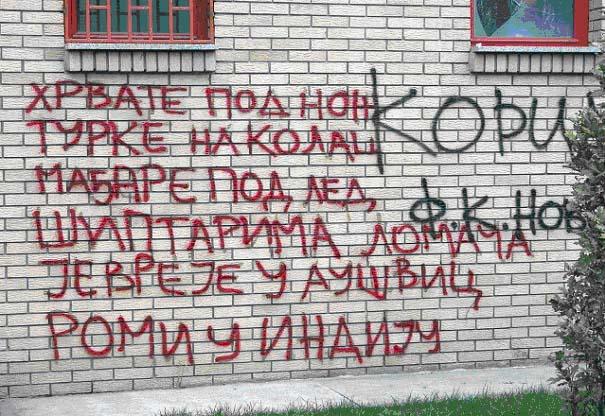 ХРВАТЕ ПОД НОЖ
ТУРКЕ НА КОЛАЦ
МАЂАРЕ ПОД ЛЕД,
ШИПТАРИМА ЛОМАЧА
ЈЕВРЕЈЕ У АУШВИЦ
РОМИ У ИНДИЈУ
Ф.К. НОВ